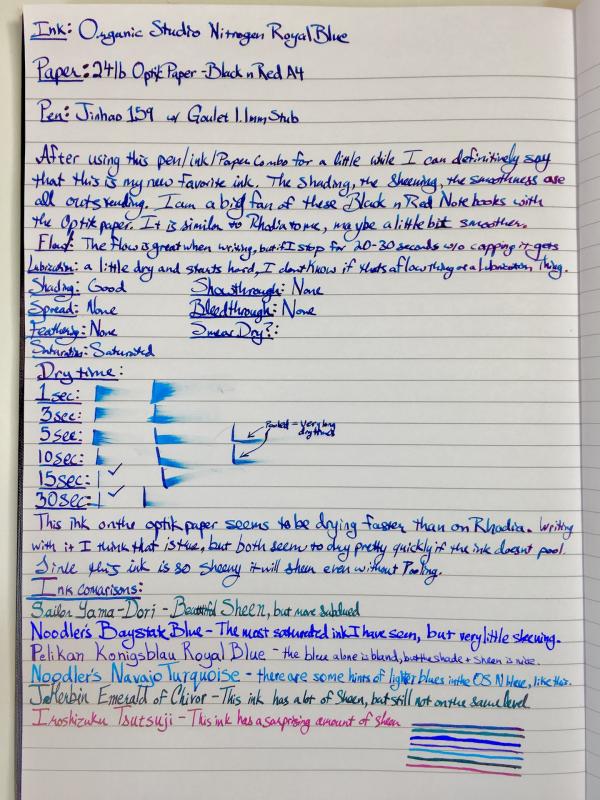 Ink: Organic Studio Nitrogen Royal Blue
Paper: 24lb Optik Paper - Black n Red A4
Pen: Jinhao 159 w/ Goulet 1.1mm Stub
After using this pen/ink/Paper Combo for a little while I can definitively say
that this is my new favorite ink. The shading, the sheening, the smoothness are
all outstanding. I am a big fan of these Black n Red Notebooks with
the Optik paper. It is similar to Rhodia to me, maybe a little bit smoother.
Flow: The flow is great when writing, but if I stop for 20-30 seconds w/o capping it gets
Lubrication: a little dry and starts hard, I dont know if thats a flow thing or a lubrication thing.
Shading: Good Showthrough: None
Spread: None Bleedthrough: None
Feathering: None Smear Dry?:
Saturation: Saturated
Dry time:
1sec:
3sec:
5sec: Pooled = very long
dry times
10sec:
15sec: ✓
30sec: ✓
This ink on the optik paper seems to be drying faster than on Rhodia. Writing
with it I think that is true, but both seem to dry pretty quickly if the ink doesnt pool.
Since this ink is so sheeny it will sheen even without Pooling.
Ink Comarisons:
Sailor Yama-Dori - Beautiful Sheen, but more subdued
Noodler's Baystate Blue - The most saturated ink I have seen, but very little sheening.
Pelikan Konigsblau Royal Blue - the blue alone is bland, but the shade + sheen is nice.
Noodler's Navajo Turquoise - there are some hints of lighter blues in the OS N blue, like this.
J. Herbin Emerald of Chivor - This ink has a lot of sheen, but still not on the same level
Iroshizuku Tsutsuji - This ink has a surprising amount of sheen